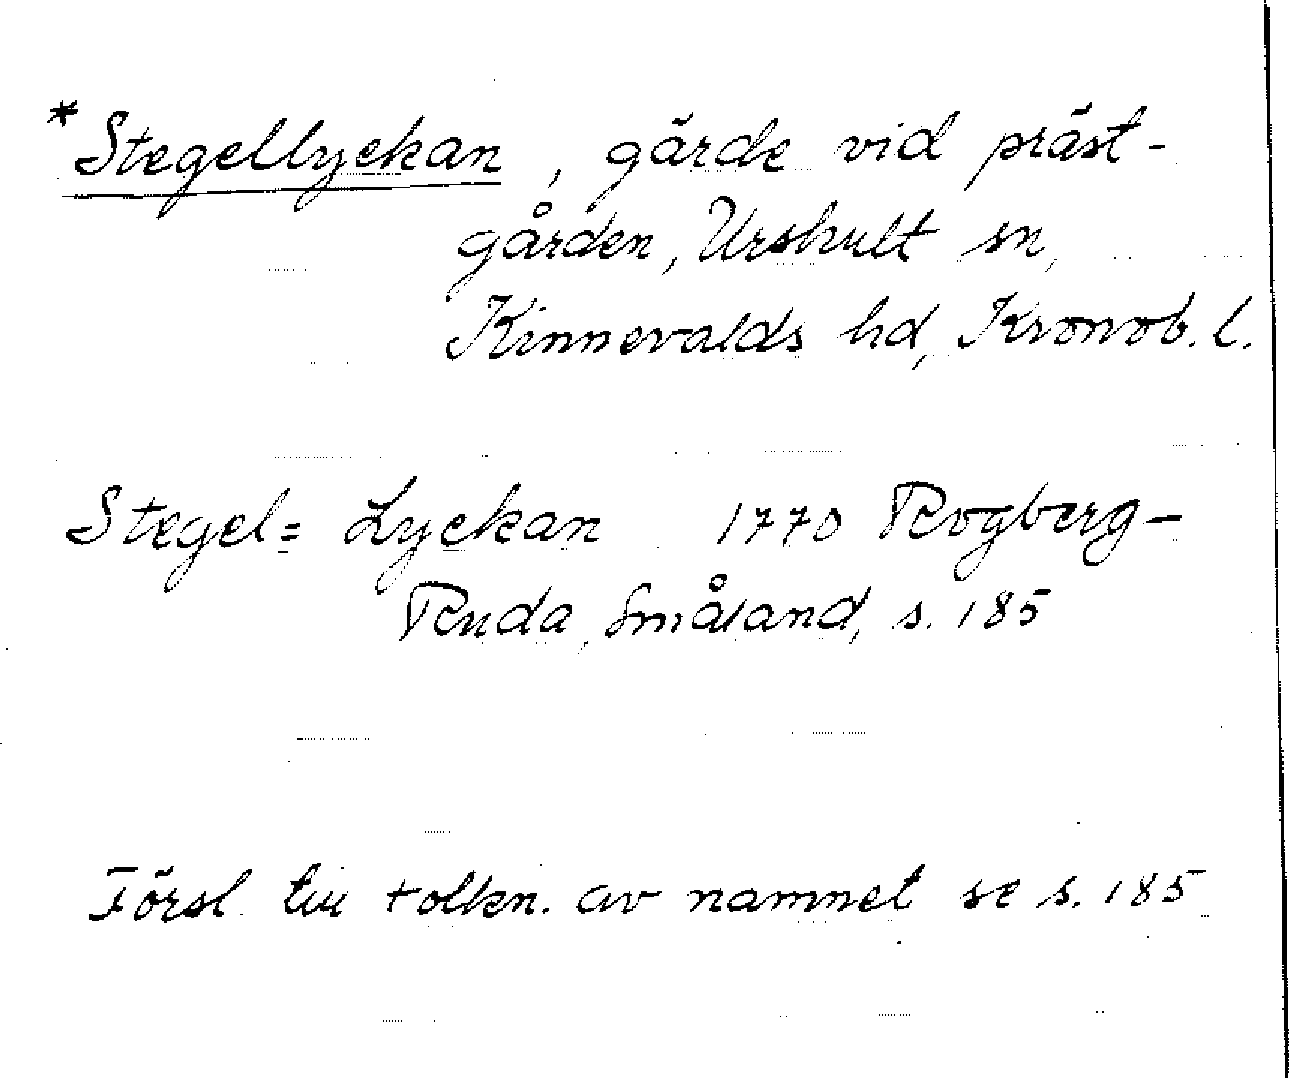 *Stegellyckan, gärde vid präst-
gården, Urshult sn,
Kinnevalds hd, Kronob. l.
Stegel= Lyckan 1770 Rogberg-
Ruda, Småland, s. 185
Försl. till tolkn. av namnet se s. 185